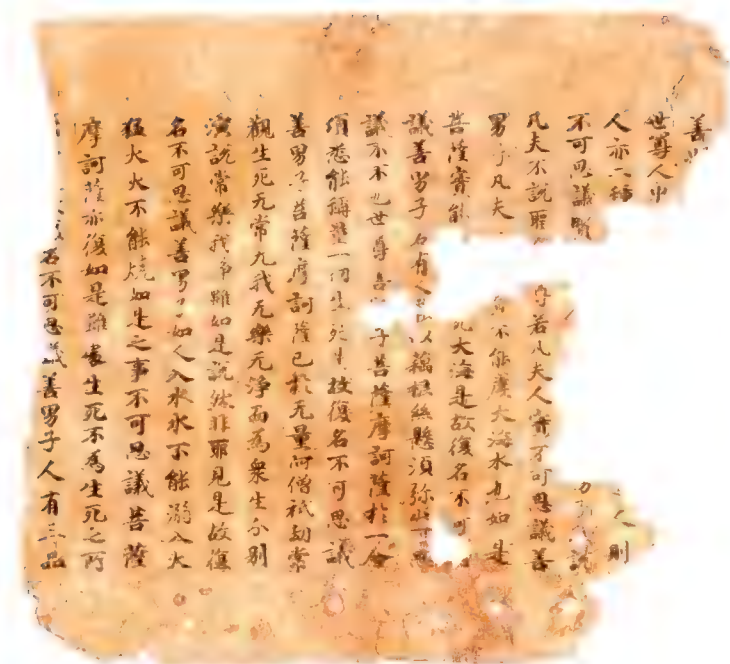 善
世尊人中
人亦一種 人則
不可思議 說
凡夫不說 若凡夫人實不可思議善
男子凡夫 不能度大海水也如是
菩薩實能 死大海是故復名不可
議善男子若有人 以藕根絲懸須弥山可思
議不不也世尊善 子菩薩摩訶薩於一念
須悉能稱量一切生死是故復名不可思議
善男子菩薩摩訶薩已於无量阿僧祇劫常
觀生死无常无我无樂无淨而為衆生分別
演說常樂我淨雖如是說然非耶見是故復
名不可思議善男子如人入水水不能溺入大
猛火火不能燒如是之事不可思議菩薩
摩訶薩亦復如是雖處生死不為生死之所
名不可思議善男子人有三品